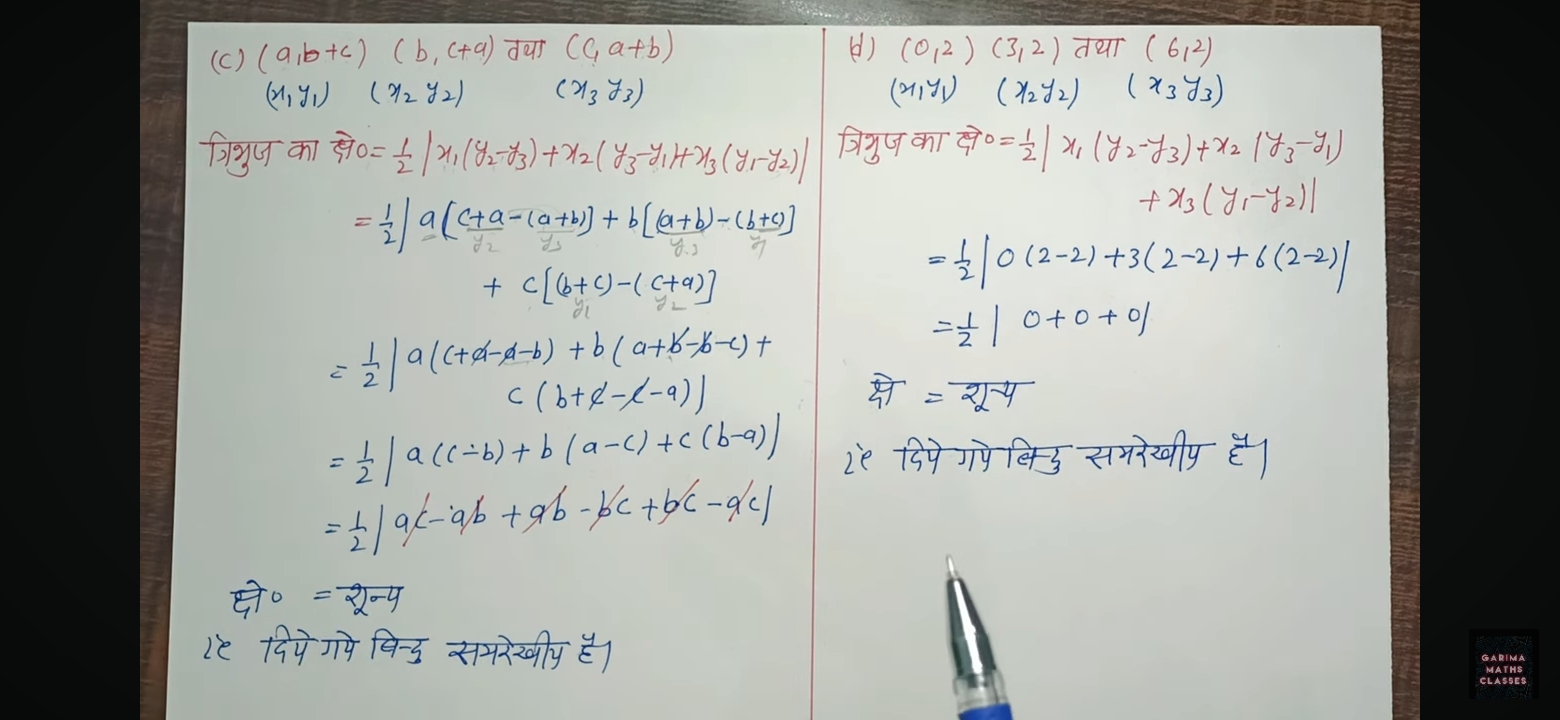 (c) (a,b+c) (b, c+a) तथा (c, a+b)
(x₁y₁) (x₂ y₂) (x₃ y₃)
त्रिभुज का क्षे० = 1/2 | x₁(y₂-y₃) + x₂(y₃-y₁) + x₃(y₁-y₂)|
= 1/2 | a[c+a-(a+b)] + b[(a+b)-(b+c)]
y₂ y₃ y₃ y₁
+ c[(b+c)-(c+a)]
y₁ y₂
= 1/2 | a(c+a-a-b) + b(a+b-b-c) +
c(b+c-c-a)|
= 1/2 | a(c-b) + b(a-c) + c(b-a)|
= 1/2 | ac - ab + ab - bc + bc - ac|
क्षे० = शून्य
दिये गये बिन्दु समरेखीय है।
d) (0,2) (3,2) तथा (6,2)
(x₁y₁) (x₂y₂) (x₃ y₃)
त्रिभुज का क्षे० = 1/2 | x₁(y₂-y₃) + x₂(y₃-y₁)
+ x₃(y₁-y₂)|
= 1/2 | 0(2-2) + 3(2-2) + 6(2-2)|
= 1/2 | 0+0+0|
क्षे = शून्य
दिये गये बिन्दु समरेखीय है।
GARIMA
MATHS
CLASSES